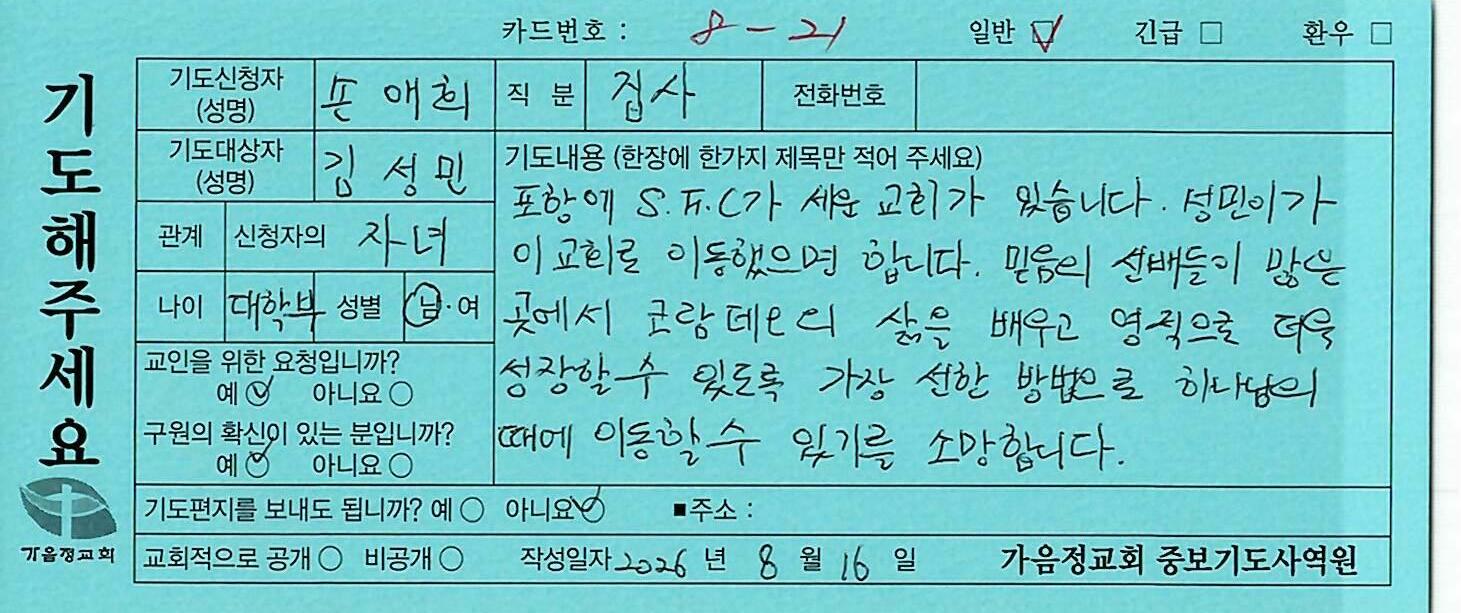 카드번호 : 8-21 일반 ☑ 긴급 □ 환우 □
기도해주세요
기도신청자 (성명) 손애희 직분 집사 전화번호
기도대상자 (성명) 김성민
관계 신청자의 자녀
나이 대학부 성별 남·여
교인을 위한 요청입니까?
예 ✓ 아니요 ○
구원의 확신이 있는 분입니까?
예 ✓ 아니요 ○
기도내용 (한장에 한가지 제목만 적어 주세요)
포항에 S.F.C가 세운 교회가 있습니다. 성민이가
이 교회로 이동했으면 합니다. 믿음의 선배들이 많은
곳에서 코람데오의 삶을 배우고 영적으로 더욱
성장할 수 있도록 가장 선한 방법으로 하나님의
때에 이동할 수 있기를 소망합니다.
기도편지를 보내도 됩니까? 예 ○ 아니요 ✓ ■주소 :
교회적으로 공개 ○ 비공개 ○ 작성일자 2026 년 8 월 16 일 가음정교회 중보기도사역원
가음정교회